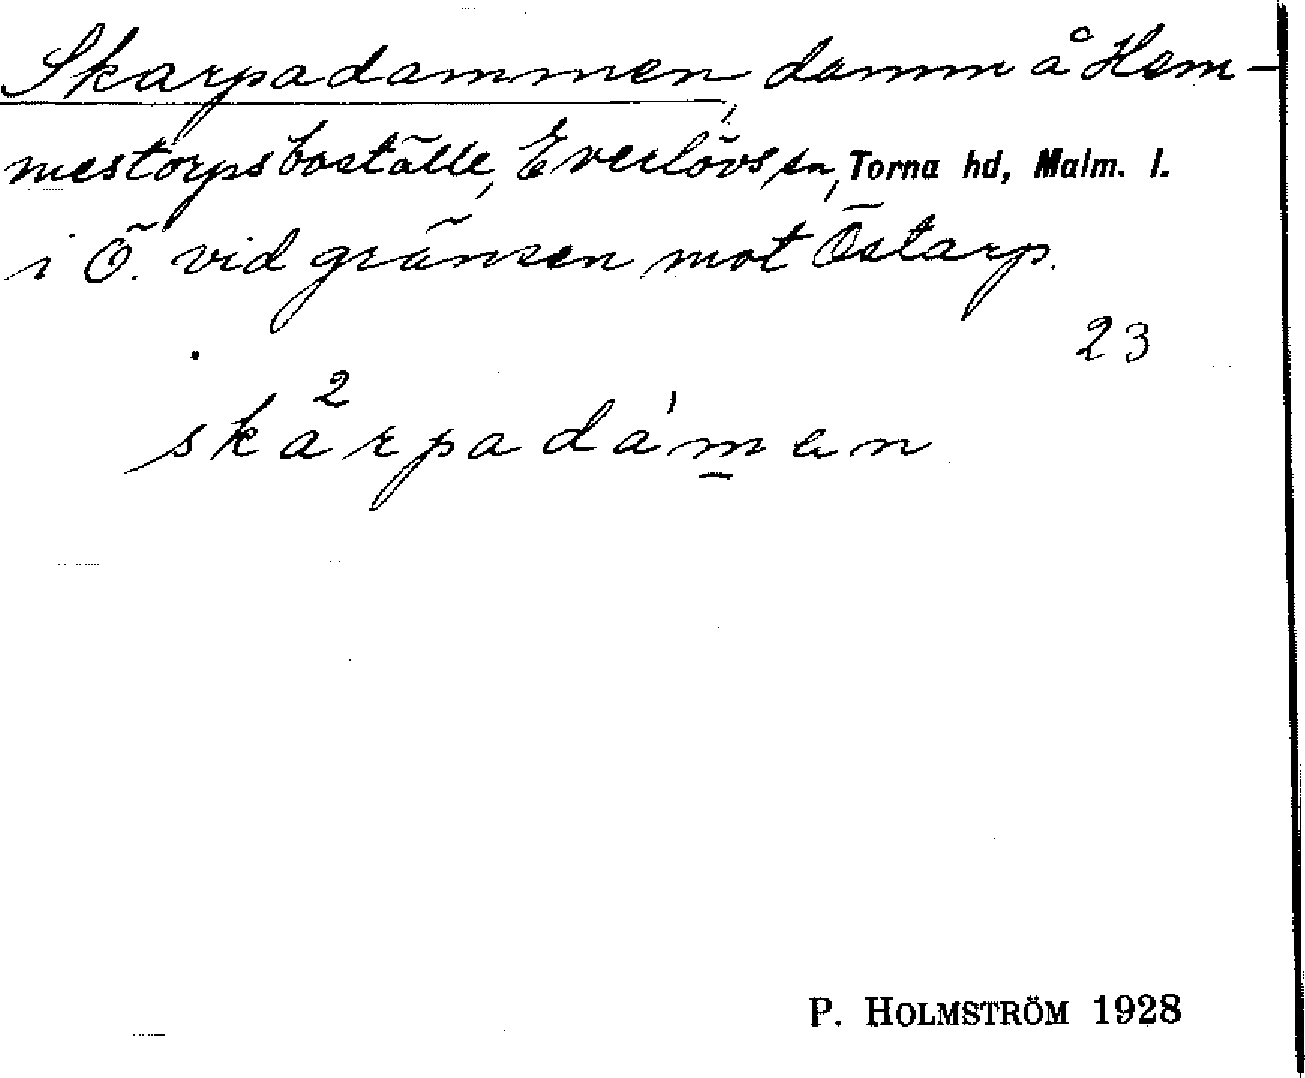 Skarpadammen, damm å Hem-
mestorpsboställe, Everlövs sn, Torna hd, Malm. l.
i Ö. vid gränsen mot Östarp.
23
ska²rpada'men
P. HOLMSTRÖM 1928